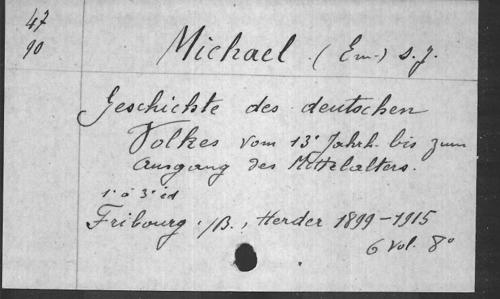 47
90
Michael (Em.) s.j.
Geschichte des deutschen
Volkes vom 13' Jahrh. bis zum
Ausgang des Mittelalters.
1° à 3° éd
Fribourg ./B., Herder 1899-1915
6 vol. 8°